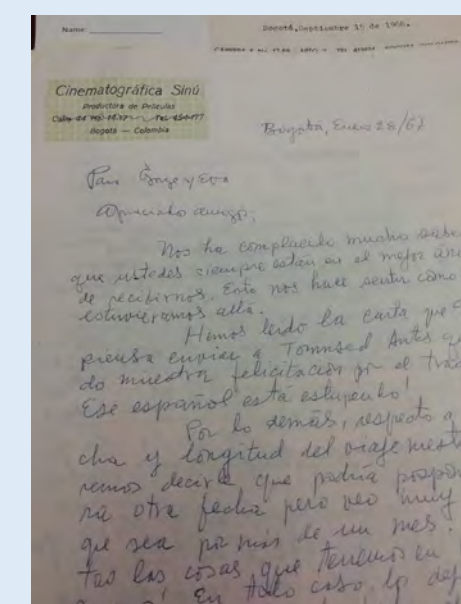 Name:
Bogotá, Septiembre 15 de 1966.
Cinematográfica Sinú
Productora de Películas
Bogotá — Colombia
Bogotá, Enero 28/67
Para Jorge y Eva
Apreciado amigo:
Nos ha complacido mucho saber
que ustedes siempre están en el mejor áni
de recibirnos. Esto nos hace sentir como
estuvieramos allá.
Hemos leido la carta que
piensa enviar a Townsed Antes que
do nuestra felicitación por el trad
Ese español está estupendo!
Por lo demás, respecto a
cha y longitud del viaje nuestr
remos decirle, que podría pospon
ra otra fecha pero veo muy
que sea por más de un mes.
tas las cosas que tenemos en
En todo caso, lo def